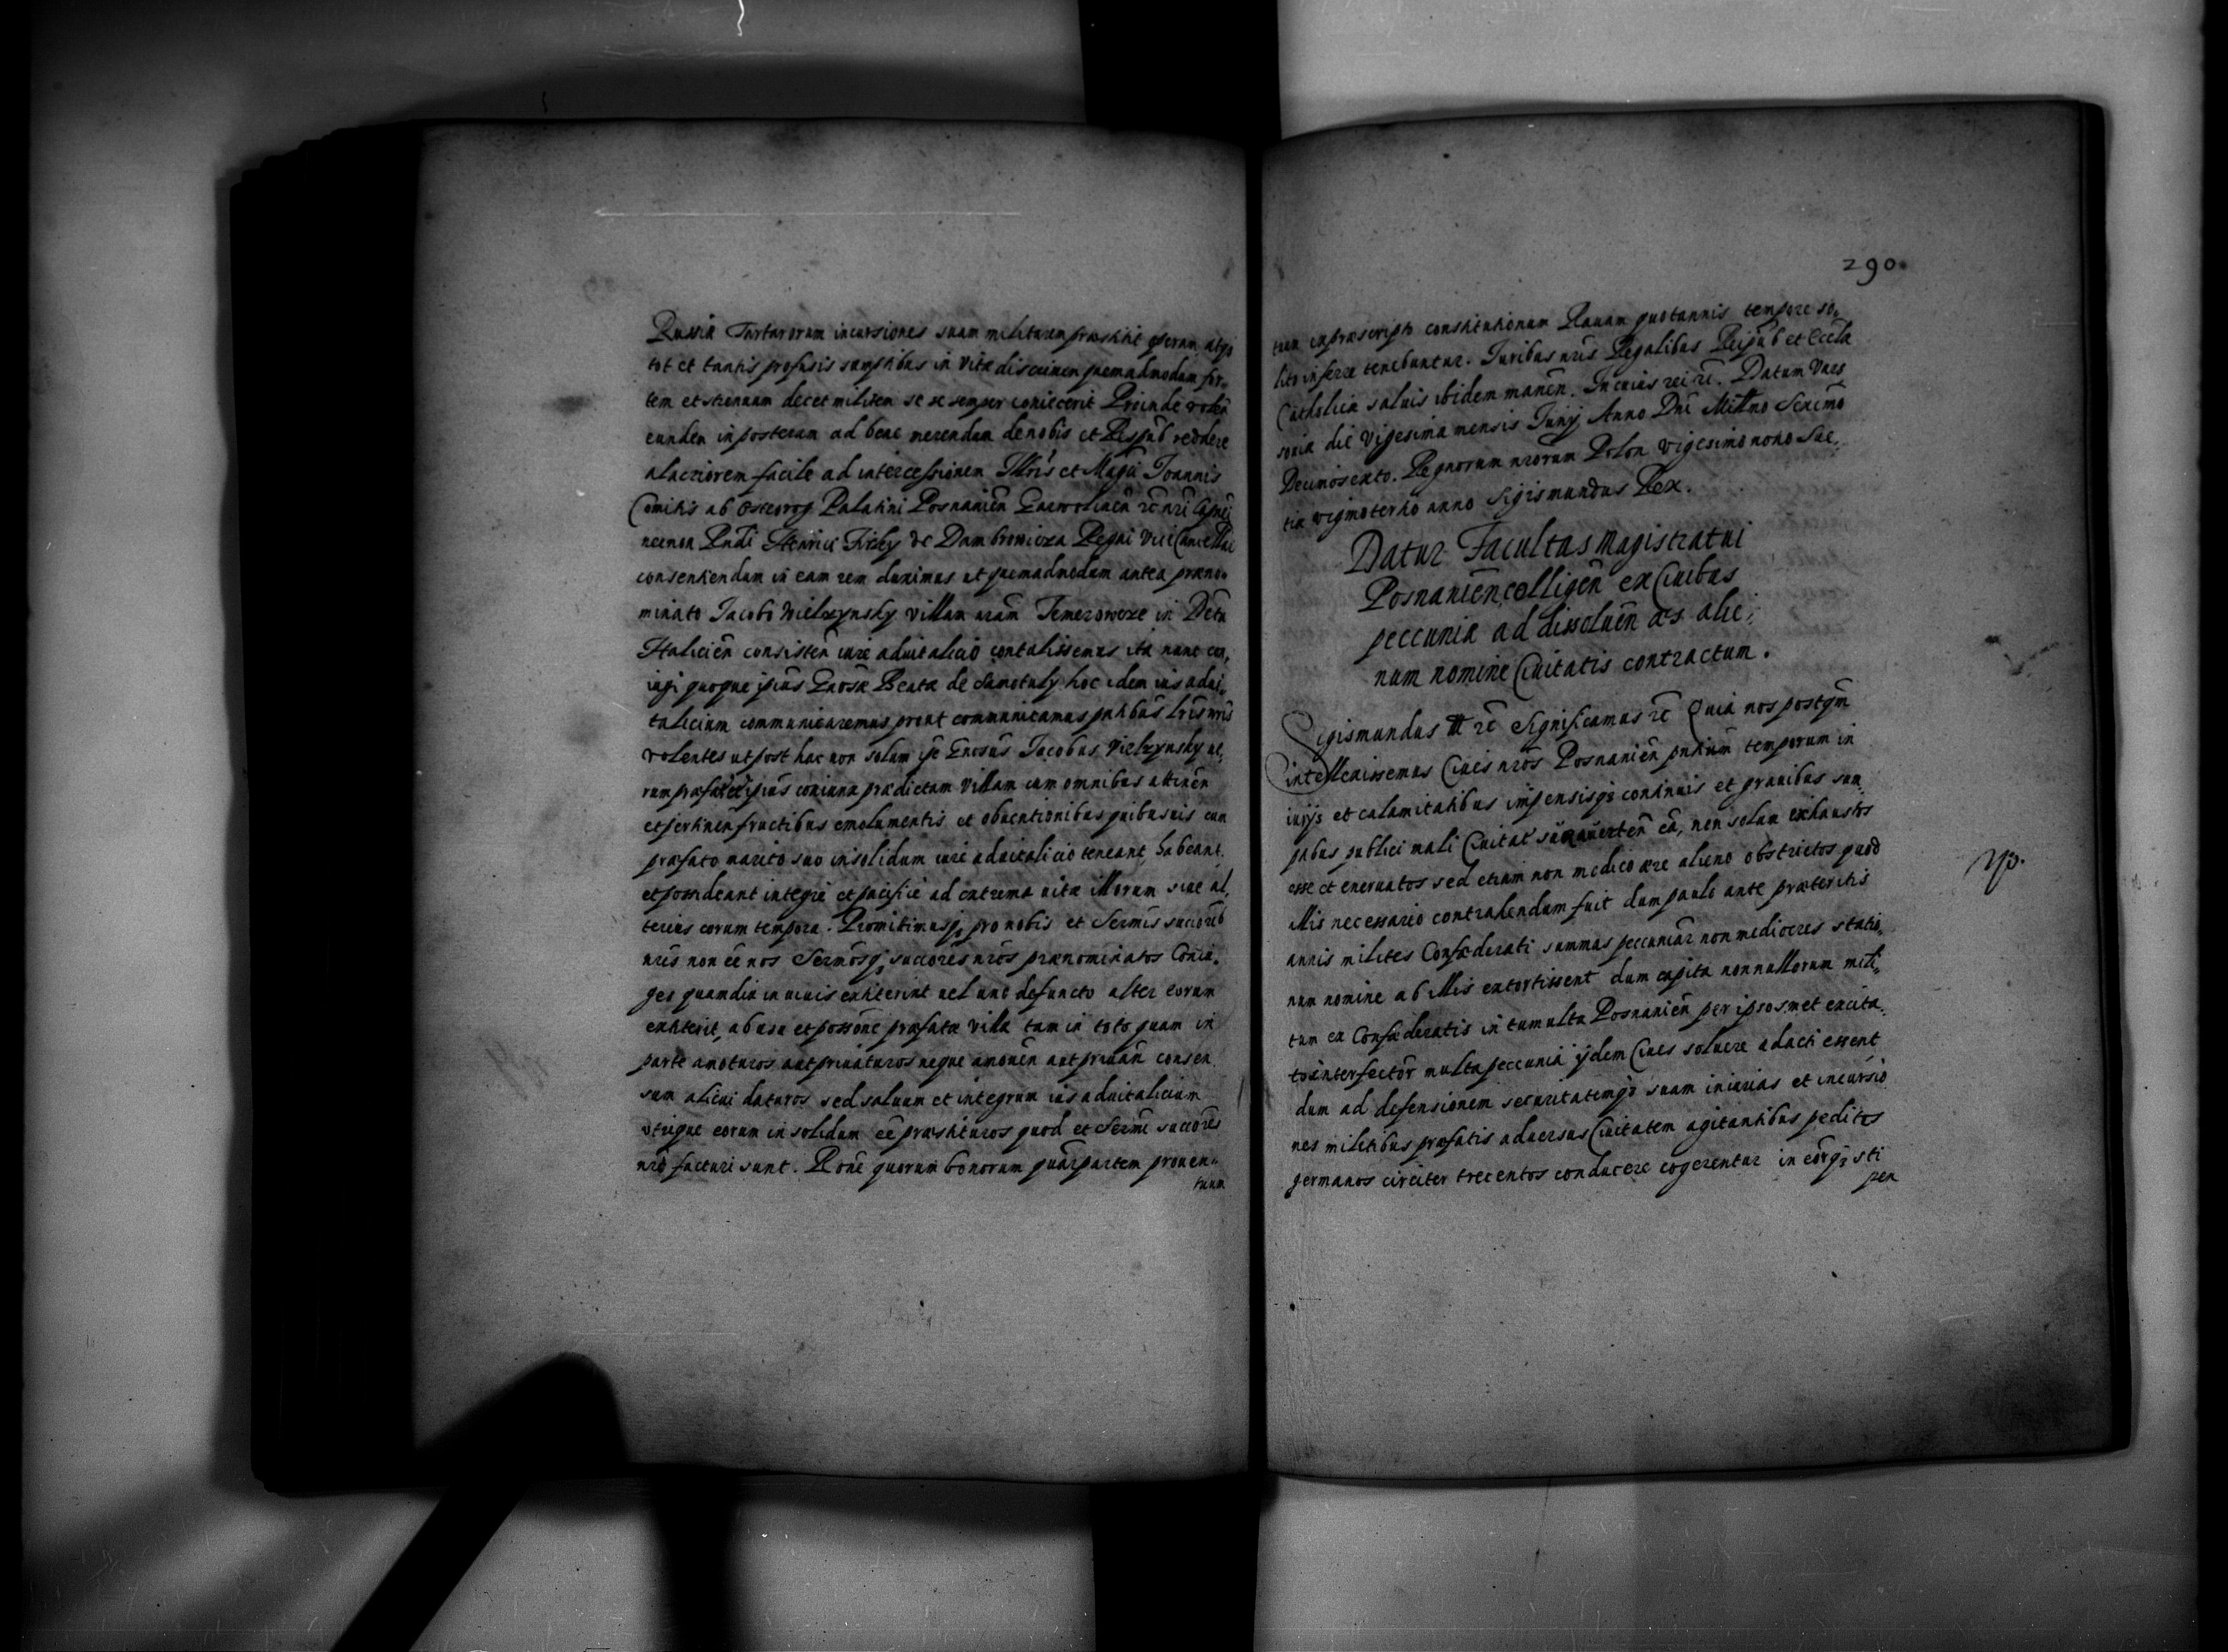 Russiæ Tartarorum incursiones suam militarem præstitit operam, atq3
tot et tantis profusis sumptibus in vitæ discrimen quemadmodum for„
tem et strenuum decet militem se se semper coniecerit Proinde volen̄
eundem in posterum ad bene merendum de nobis et Repub reddere
alacriorem facile ad intercessionem Illris et Magci Ioannis
Comitis ab Ostrorog Palatini Posnanien̄
necnon Rndi Henrici Firley de Dambrowicza Regni ViceCancellarii
consentiendum in eam rem duximus ut quemadmodum antea præno„
minato Iacobo Wielzynsky villam nr̄am Temerowcze in
Halicien̄ consisten̄ iure aduitalicio contulissemus ita nunc con„
iugi quoque ipsius Gnosæ Beatæ de Samotuly hoc idem ius adui„
talicium communicaremus prout communicamus pntibus lris nris
volentes ut post hac non solum ipse Gnosus Iacobus Vielzynsky ue„
rum præfatæ ipsius coniunx prædictam Villam cum omnibus attinen̄
et pertinen fructibus emolumentis et obuentionibus quibusuis cum
præfato marito suo insolidum iure aduitalicio teneant, habeant
et possideant integre et pacifice ad extrema uitæ illorum siue al„
terius eorum tempora. Promittimusq3 pro nobis et Sermis succorib
nris non ēē nos Sermosq3 succores nros prænominatos Coniu„
ges quamdiu in uiuis extiterint uel uno defuncto alter eorum
extiterit, ab usu et possone præfatæ villæ tam in toto quam in
parte amoturos aut priuaturos neque amouen̄ aut priuan̄ consen
sum alicui daturos sed saluum et integrum ius aduitalicium
utrique eorum in solidum ēē præstituros quod et Sermi succores
nri facturi sunt. Rone quorum bonorum quar partem prouen„
tuum
290
tuum ex præscripto constitutionum Rauam quotannis tempore so„
lito inferre tenebuntur. Iuribus nris Regalibus Reipub et Eccla
Catholicæ saluis ibidem manen̄. In cuius rei rc̄. Datum Vars
soviæ die Vigesima mensis Iunij Anno Dni Millmo Sexcmo
Decimosexto. Regnorum nrorum Polon vigesimo nono Sue„
tiæ vigmotertio anno Sigismundus Rex.
Datur Facultas Magistratui
Posnanien colligen̄ ex Ciuibus
peccuniæ ad dissoluen̄ æs alie„
num nomine Ciuitatis contractum.
Sigismundus III rc̄ Significamus rc̄ Quia nos postqm̄
intellexissemus Ciues nros Posnanien̄ pntium temporum in
iurijs et calamitatibus impensisq3 continuis et grauibus sum
ptibus publici mali Ciuitat̄ ea, non solum exhaustos
esse et eneruatos sed etiam non medico ære alieno obstrictos quod
illis necessario contrahendum fuit dum paulo ante præteritis
annis milites Confæderati summas peccuniar̄ non mediocres statio„
num nomine ab illis extortissent dum capita nonnullorum mili„
tum ex Confæderatis in tumultu Posnanien̄ per ipsosmet excita„
to interfector̄ multa peccunia ijdem Ciues soluere adacti essent
dum ad defensionem securitatemq3 suam iniurias et incursio
nes militibus præfatis aduersus Ciuitatem agitantibus pedites
germanos circiter trecentos conducere cogerentur in eorq3 sti
pen